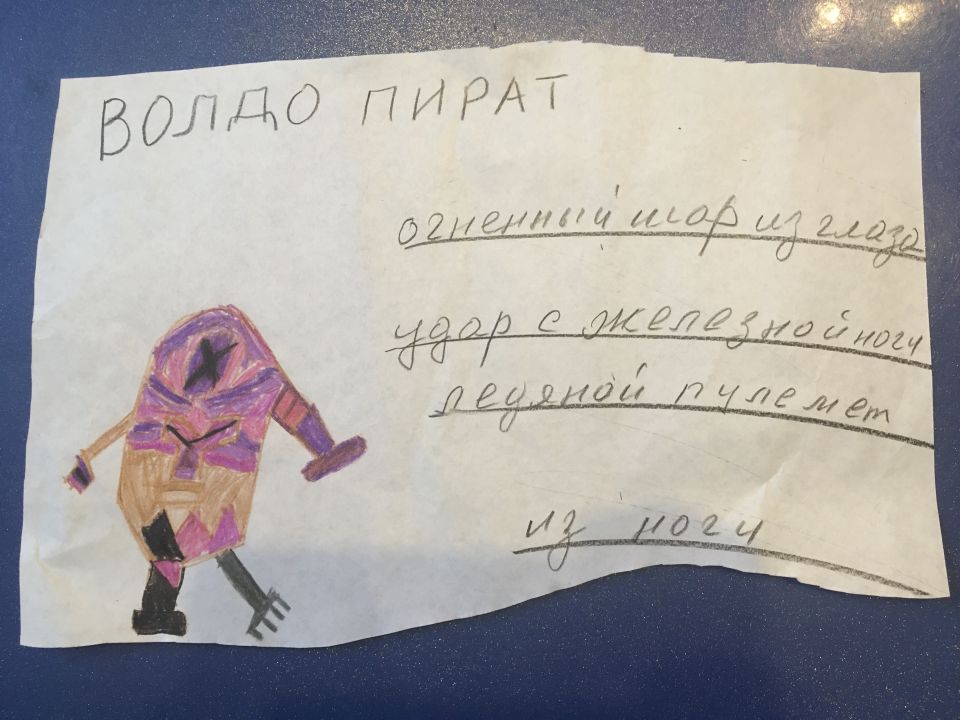 ВОЛДО ПИРАТ
огненный шар из глаза
удар с железной ноги
ледяной пулемет
из ноги